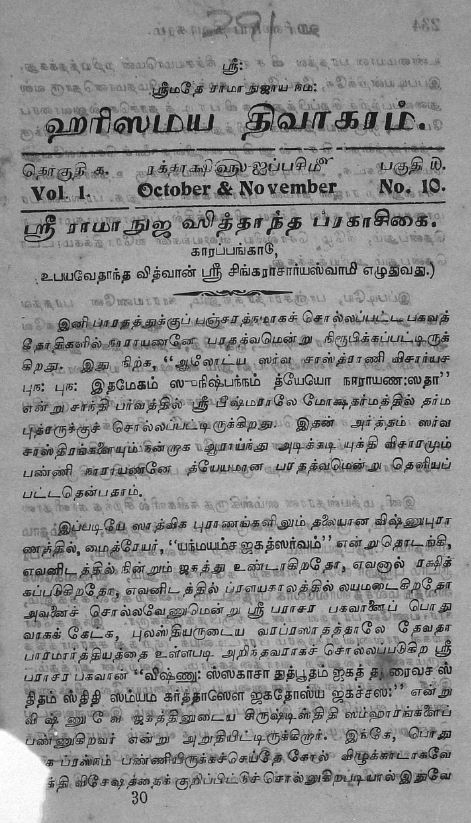 ஸ்ரீ:
ஸ்ரீமதே ராமாநுஜாய நம:
ஹரிஸமய திவாகரம்.
தொகுதி க. ரக்தாக்ஷி௵ ஐப்பசி௴ பகுதி ௰.
Vol. 1. October & November No. 10.
ஸ்ரீ ராமாநுஜ ஸித்தாந்த ப்ரகாசிகை.
காரப்பங்காடு,
உபயவேதாந்த வித்வான் ஸ்ரீ சிங்கராசார்யஸ்வாமி எழுதுவது.)
இனி பாரதத்துக்குப் பஞ்சரத்நமாகச் சொல்லப்பட்ட பகவத்
கீதாதிகளில் நாராயணனே பரதத்வமென்று நிரூபிக்கப்பட்டிருக்
கிறது. இது நிற்க, "ஆலோட்ய ஸர்வ சாஸ்த்ராணி விசார்யச
புந: புந: இதமேகம் ஸுநிஷ்பந்நம் த்யேயோ நாராயண:ஸதா"
என்று சாந்தி பர்வத்தில் ஸ்ரீ பீஷ்மராலே மோக்ஷதர்மத்தில் தர்ம
புத்ரருக்குச் சொல்லப்பட்டிருக்கிறது. இதன் அர்த்தம் ஸர்வ
சாஸ்திரங்களையும் நன்றாக ஆராய்ந்து அடிக்கடி யுக்தி விசாரமும்
பண்ணி நாராயணனே த்யேயமான பரதத்வமென்று தெளியப்
பட்டதென்பதாம்.
இப்படியே ஸாத்விக புராணங்களிலும் தலையான விஷ்ணுபுரா
ணத்தில், மைத்ரேயர், "யந்மயம்ச ஜகத்ஸர்வம்" என்றுதொடங்கி,
எவனிடத்தில் நின்றும் ஜகத்து உண்டாகிறதோ, எவனால் ரக்ஷிக்
கப்படுகிறதோ, எவனிடத்தில் ப்ரளயகாலத்தில் லயமடைகிறதோ
அவனைச் சொல்லவேணுமென்று ஸ்ரீ பராசர பகவானைப் பொது
வாகக் கேட்க, புலஸ்தியருடைய வரப்ரஸாதத்தாலே தேவதா
பாரமார்த்தியத்தை உள்ளபடி அறிந்தவராகச் சொல்லப்படுகிற ஸ்ரீ
பராசர பகவான் "விஷ்ணு: ஸ்ஸகாசா துத்பூதம் ஜகத் தத்ரைவச ஸ்
திதம் ஸ்திதி ஸம்யம கர்த்தாஸௌ ஜகதோஸ்ய ஜகச்சஸ:" என்று
விஷ்ணுவே ஜகத்தினுடைய சிருஷ்டிஸ்திதி ஸம்ஹாரங்களைப்
பண்ணுகிறவர் என்று அறுதியிட்டிருக்கிறார். இங்கே, பொது
ப்ரஸ்நம் பண்ணியிருக்கச்செய்தே கோல் விழுக்காடாகவே
விசேஷத்தைக் குறிப்பிட்டுச் சொல்லுகிறபடியால் இதுவே
30